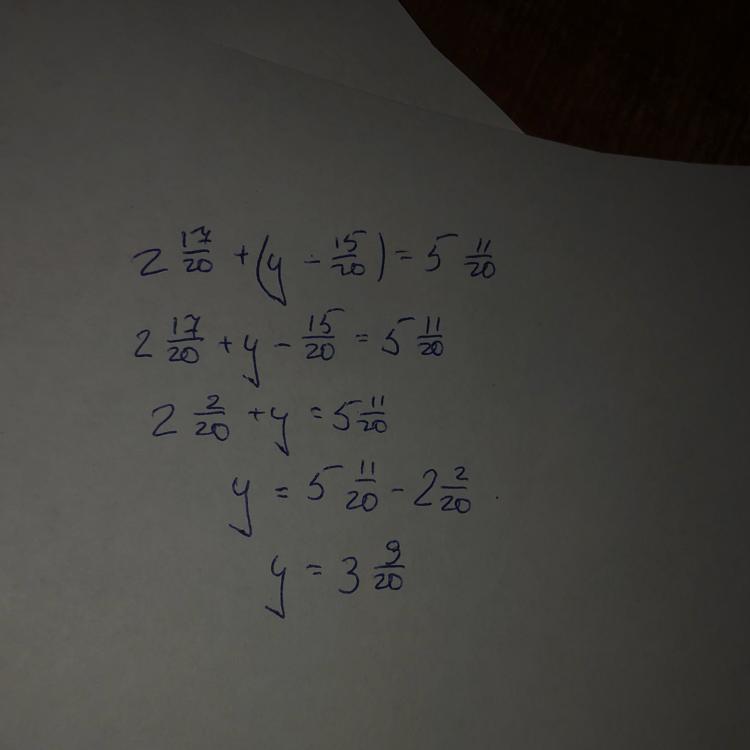 2 17/20 + (y - 15/20) = 5 11/20
2 17/20 + y - 15/20 = 5 11/20
2 2/20 + y = 5 11/20
y = 5 11/20 - 2 2/20
y = 3 9/20